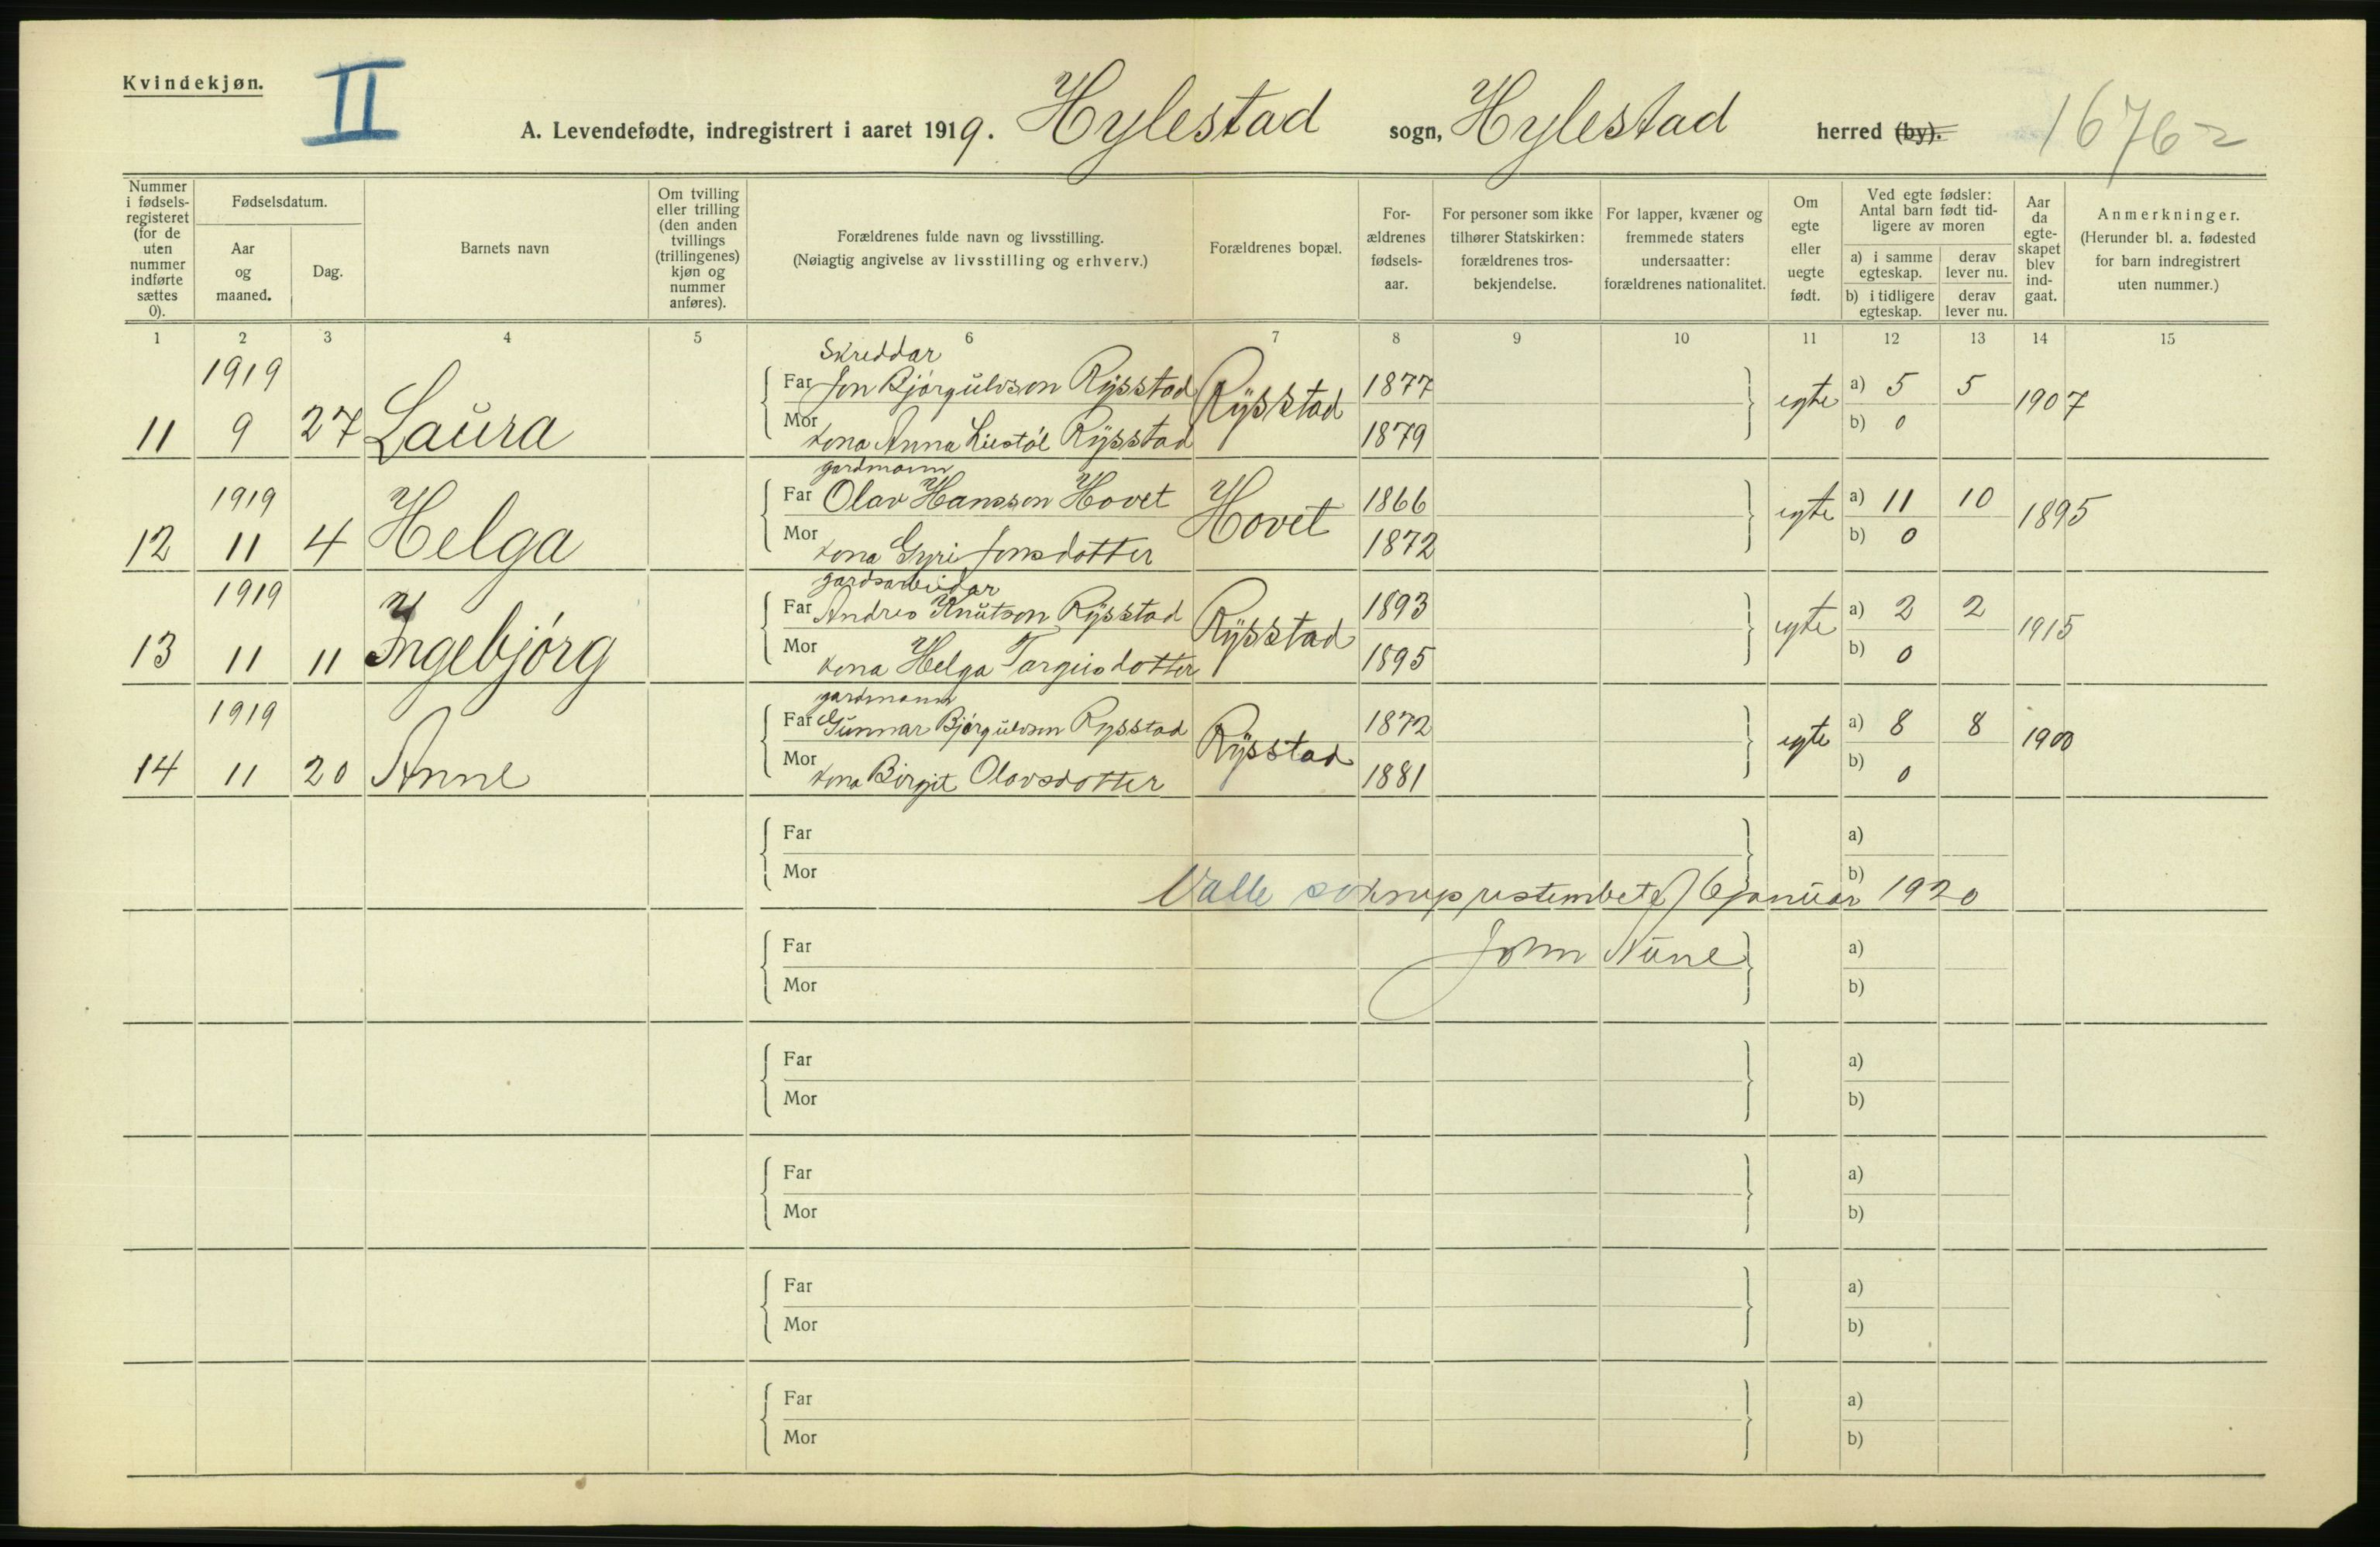 Kvindekjøn.
II
A. Levendefødte, indregistrert i aaret 1919. Hylestad sogn, Hylestad herred (by). 1676 2
Nummer i fødselsregisteret (for de uten nummer indførte sættes 0).
Fødselsdatum.
Aar og maaned.
Dag.
Barnets navn
Om tvilling eller trilling (den anden tvillings (trillingenes) kjøn og nummer anføres).
Forældrenes fulde navn og livsstilling.
(Nøiagtig angivelse av livsstilling og erhverv.)
Forældrenes bopæl.
Forældrenes fødselsaar.
For personer som ikke tilhører Statskirken: forældrenes trosbekjendelse.
For lapper, kvæner og fremmede staters undersaatter: forældrenes nationalitet.
Om egte eller uegte født.
Ved egte fødsler: Antal barn født tidligere av moren
a) i samme egteskap. derav lever nu.
b) i tidligere egteskap. derav lever nu.
Aar da egteskapet blev indgaat.
Anmerkninger.
(Herunder bl. a. fødested for barn indregistrert uten nummer.)
1 2 3 4 5 6 7 8 9 10 11 12 13 14 15
1919 Skreddar
Far Jon Bjørgulvson Rysstad Rysstad 1877 egte a) 5 5 1907
11 9 27 Laura
Mor kona Anna Liestøl Rysstad 1879 b) 0
1919 gardmann
Far Olav Hansson Hovet Hovet 1866 egte a) 11 10 1895
12 11 4 Helga
Mor kona Gyri Jonsdotter 1872 b) 0
1919 gardsarbeidar
Far Andres Knutson Rysstad Rysstad 1893 egte a) 2 2 1915
13 11 11 Ingebjørg
Mor kona Helga Targeisdotter 1895 b) 0
1919 gardmann
Far Gunnar Bjørgulvson Rysstad Rysstad 1872 egte a) 8 8 1900
14 11 20 Anne
Mor kona Birgit Olavsdotter 1881 b) 0
Far a)
Mor b)
Valle sokneprestembete 6 januar 1920
Far John a)
Mor b)
Far a)
Mor b)
Far a)
Mor b)
Far a)
Mor b)
Far a)
Mor b)